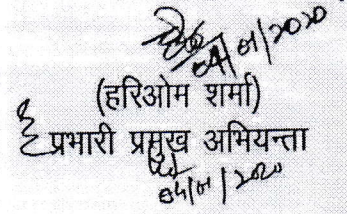 04/01/2020
(हरिओम शर्मा)
प्रभारी प्रमुख अभियन्ता
04/01/2020